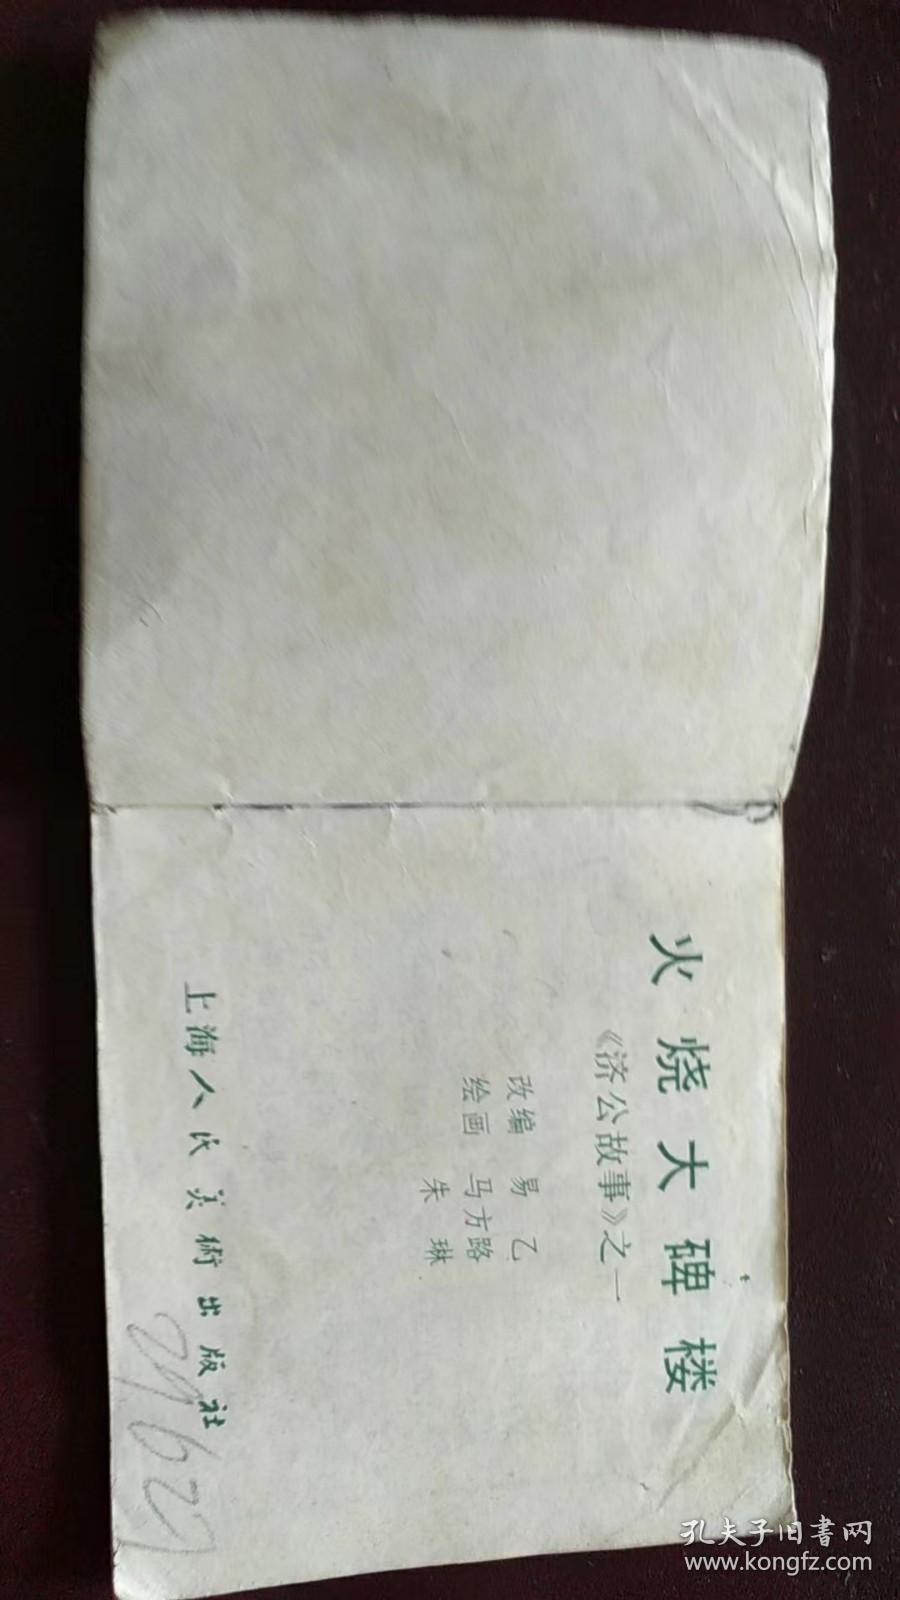 火烧大碑楼
《济公故事》之一
改编 易乙
绘画 马方路
朱琳
上海人民美術出版社
孔夫子旧書网
www.kongfz.com